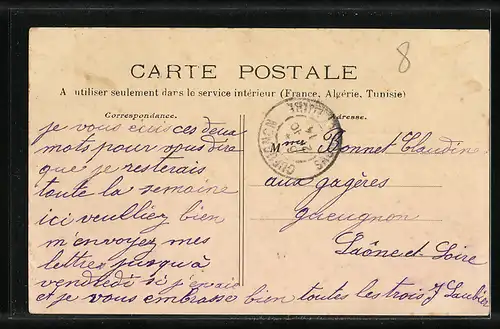 8
CARTE POSTALE
A utiliser seulement dans le service intérieur (France, Algérie, Tunisie)
Correspondance.
Adresse.
je vous ecris ces deux
mots pour vous dire
que je resterais
toute la semaine
ici veulliez bien
m'envoyez mes
lettres jusqu'à
vendredi si j'en ai
et je vous embrasse bien toutes les trois J Laubier
GUEUGNON
Mme Bonnet Claudine
aux gagères
gueugnon
Saône et Loire